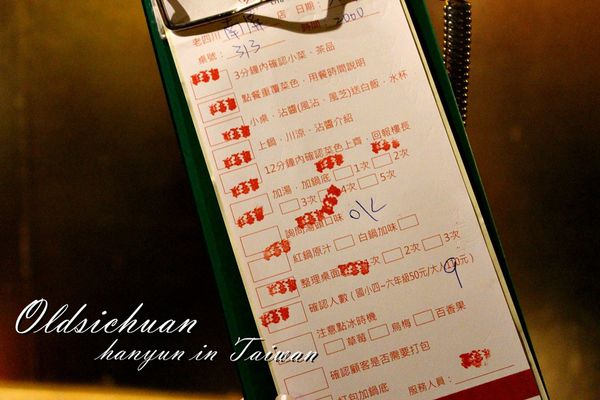 店 日期：
老四川 時間：2000
桌號：313
3分鐘內確認小菜、茶品
點餐重覆菜色，用餐時間說明
小桌，沾醬(風沾，風芝)送白飯，水杯
上鍋，川涼，沾醬介紹
12分鐘內確認菜色上齊，回報樓長
加湯，加鍋底 □1次 □2次
□3次 □4次 □5次
詢問湯頭口味 ok
紅鍋原汁 □ 白鍋加味 □
整理桌面 次 □2次 □3次
確認人數(國小四~六年級50元/大人100元) 9
注意點冰時機
□草莓 □烏梅 □百香果
確認顧客是否需要打包
紅包加鍋底 服務人員：
Oldsichuan
hanyun in Taiwan